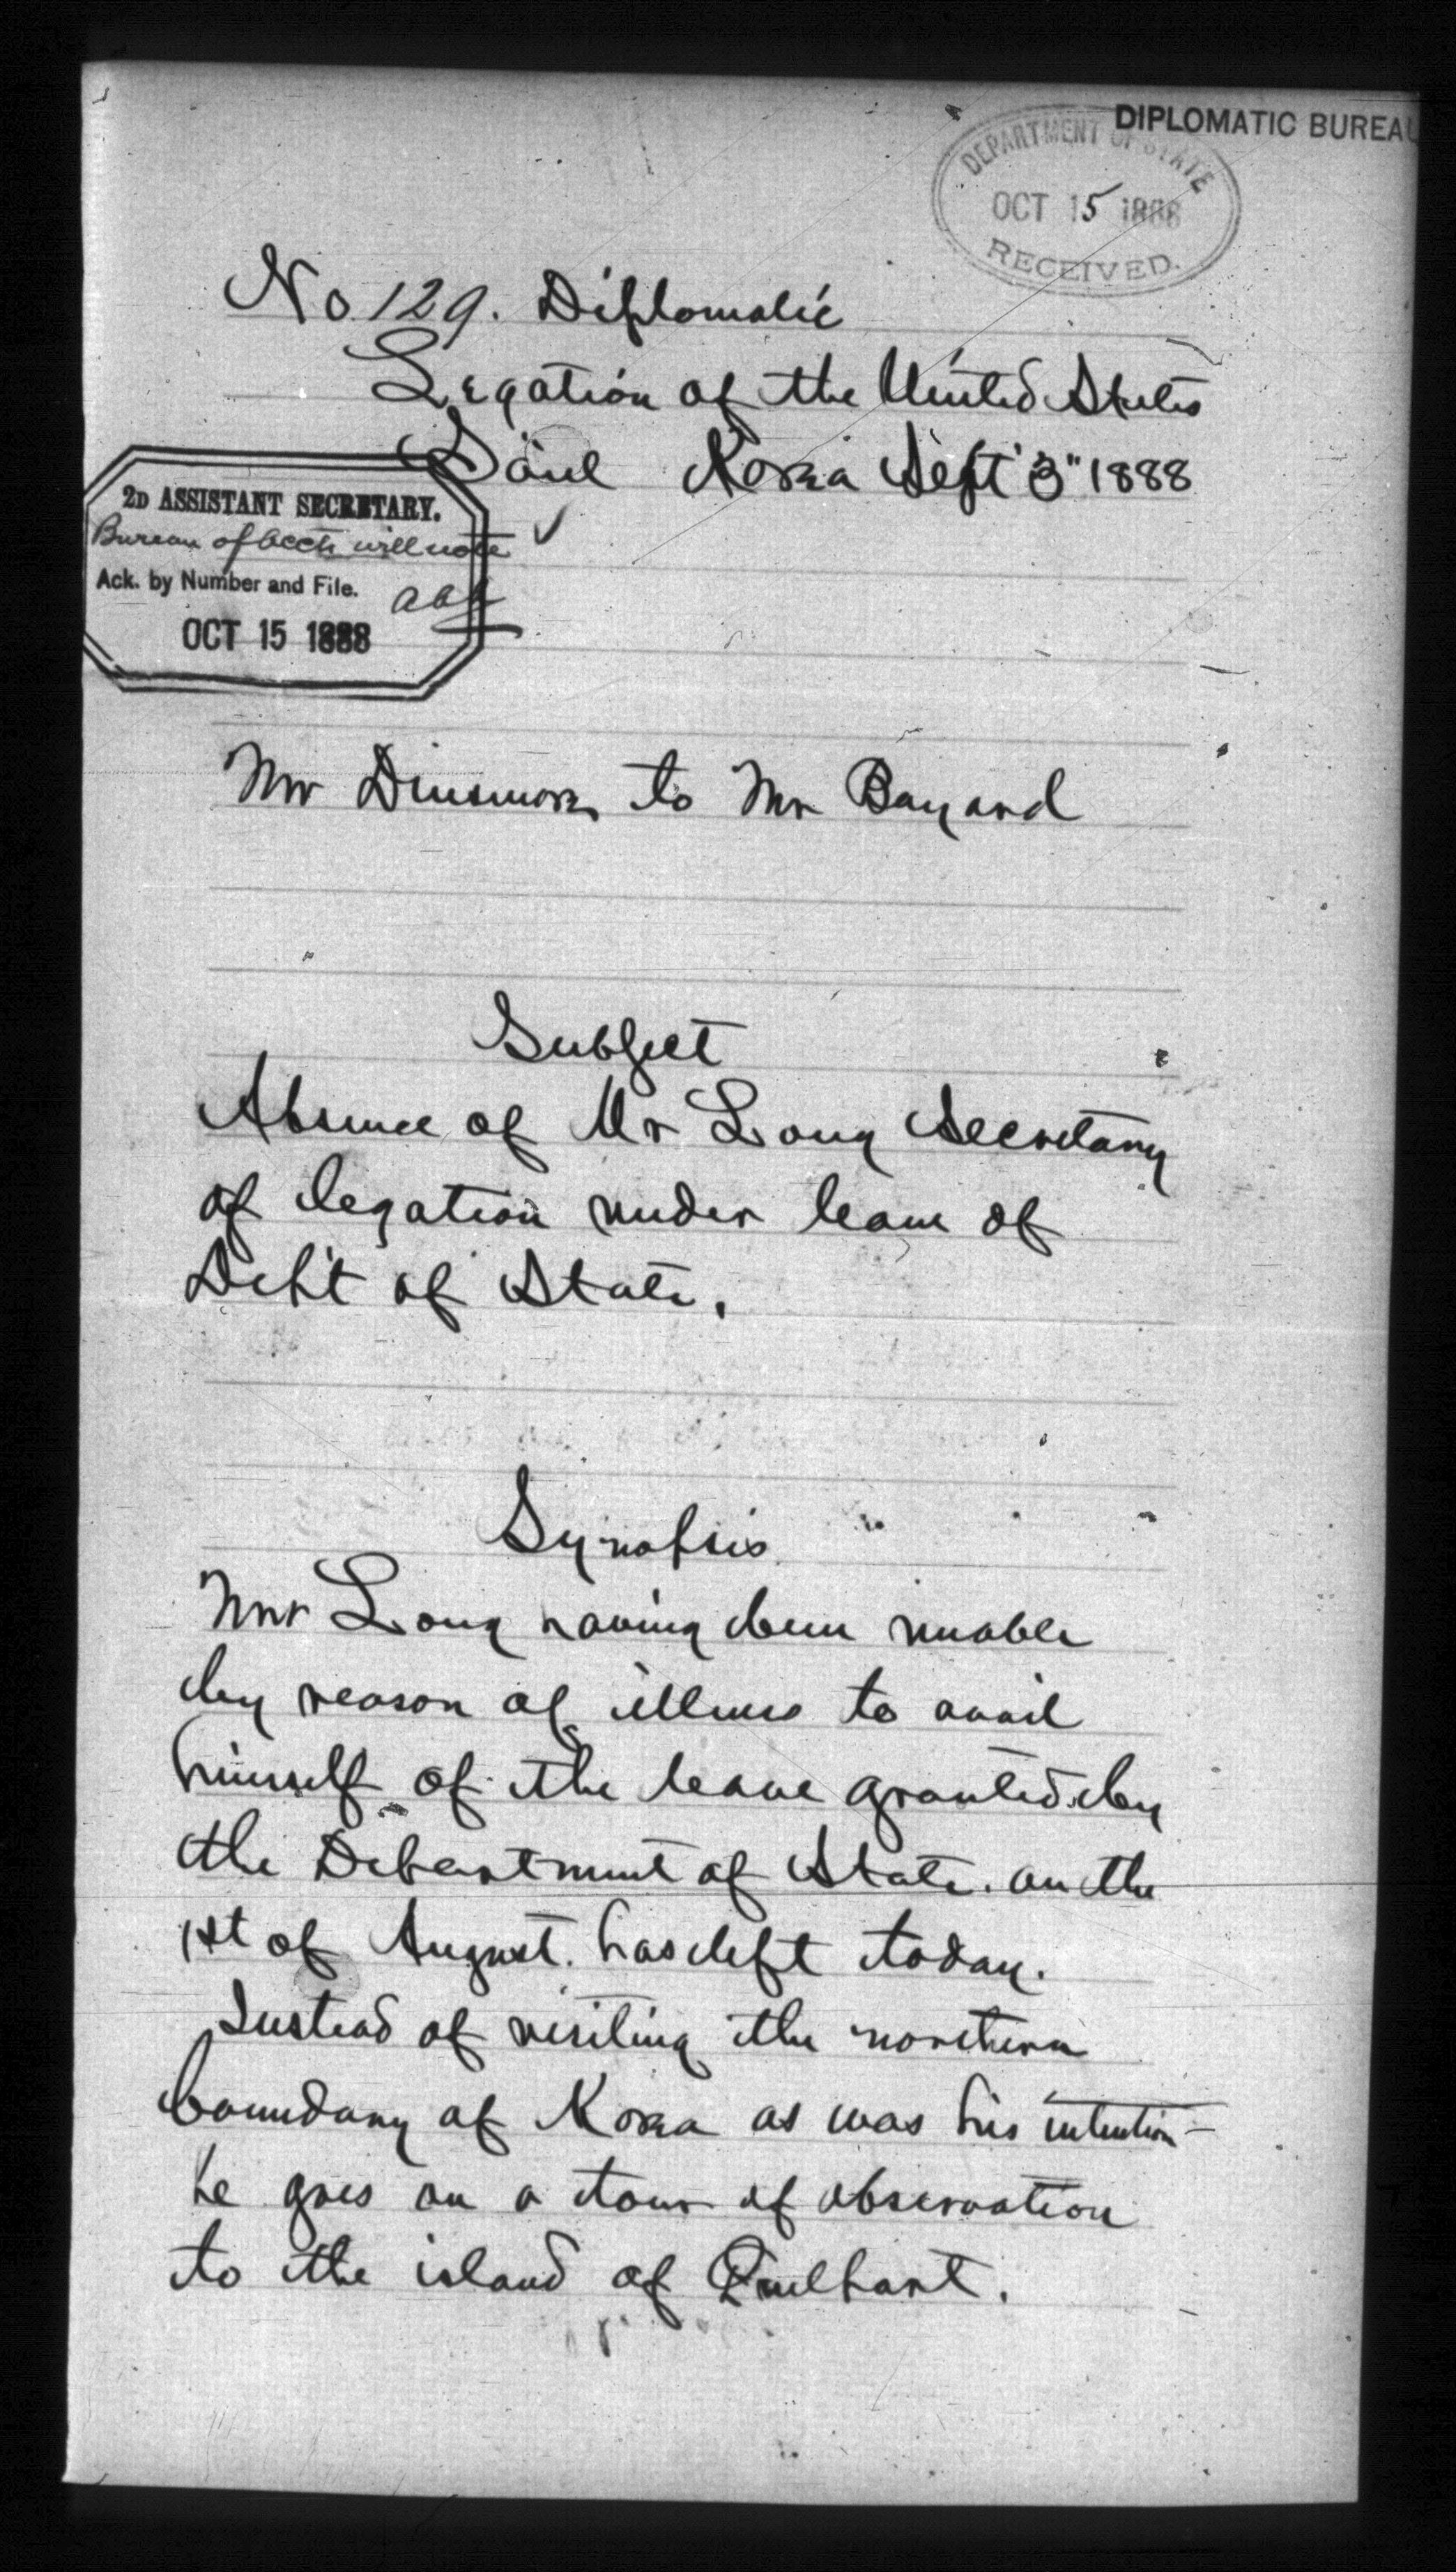 DIPLOMATIC BUREAU
DEPARTMENT OF STATE
OCT 15 1888
RECEIVED.
No. 129. Diplomatic
Legation of the United States
Söul Korea Sept 3" 1888
2D ASSISTANT SECRETARY.
Bureau of Accts will note
Ack. by Number and File.
OCT 15 1888
Mr Dinsmore to Mr Bayard
Subject
Absence of Mr Long Secretary
of legation under leave of
Dep't of State.
Synopsis
Mr Long having been unable
by reason of illness to avail
himself of the leave granted by
the Department of State. on the
1st of August. has left today.
Instead of visiting the northern
boundary of Korea as was his intention-
he goes on a tour of observation
to the island of Quelpart.